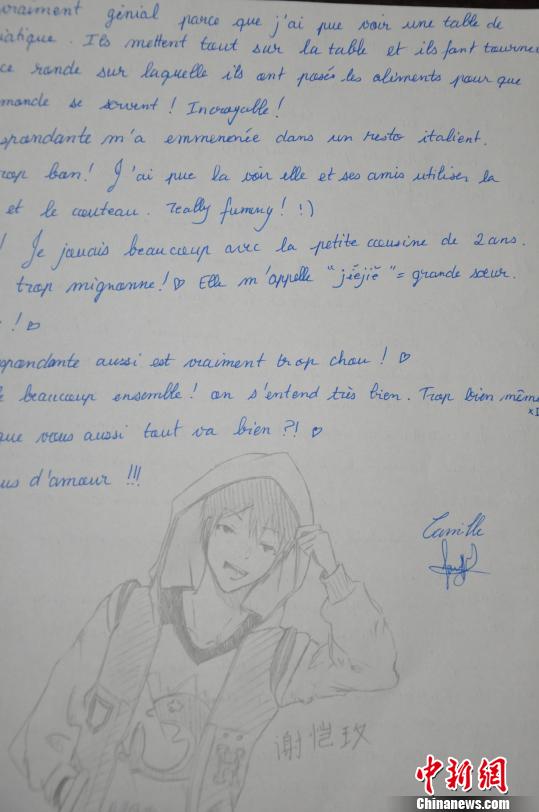 vraiment génial parce que j'ai pue voir une table de
iatique. Ils mettent tout sur la table et ils font tourner
ce ronde sur laquelle ils ont posés les aliments pour que
monde se servent ! Incroyable !
spondante m'a emmenenée dans un resto italient.
rop bon ! J'ai pue la voir elle et ses amis utiliser la
et le couteau. really funny ! :)
! Je jouais beaucoup avec la petite cousine de 2 ans.
trop mignonne ! ♡ Elle m'appelle "jiějiě" = grande sœur.
! ♡
spondante aussi est vraiment trop chou ! ♡
beaucoup ensemble ! on s'entend très bien. Trop bien même
xD
que vous aussi tout va bien ?! ♡
us d'amour !!!
Camille
谢恺玫
中新网
Chinanews.com